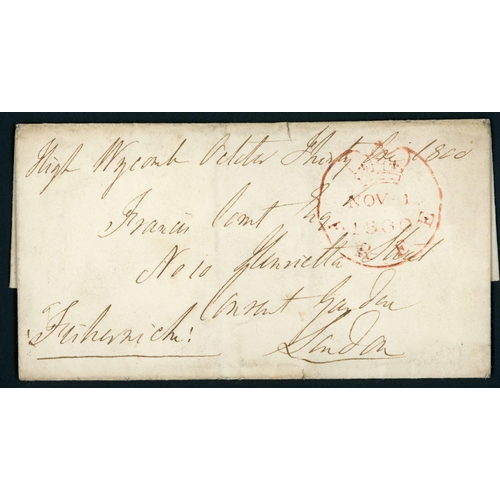 High Wycomb October Thirty one 1800
Francis Esq
No 10 Henrietta Street
Covent Garden
London
Fisherwick:
NOV 1
1800
F R E E